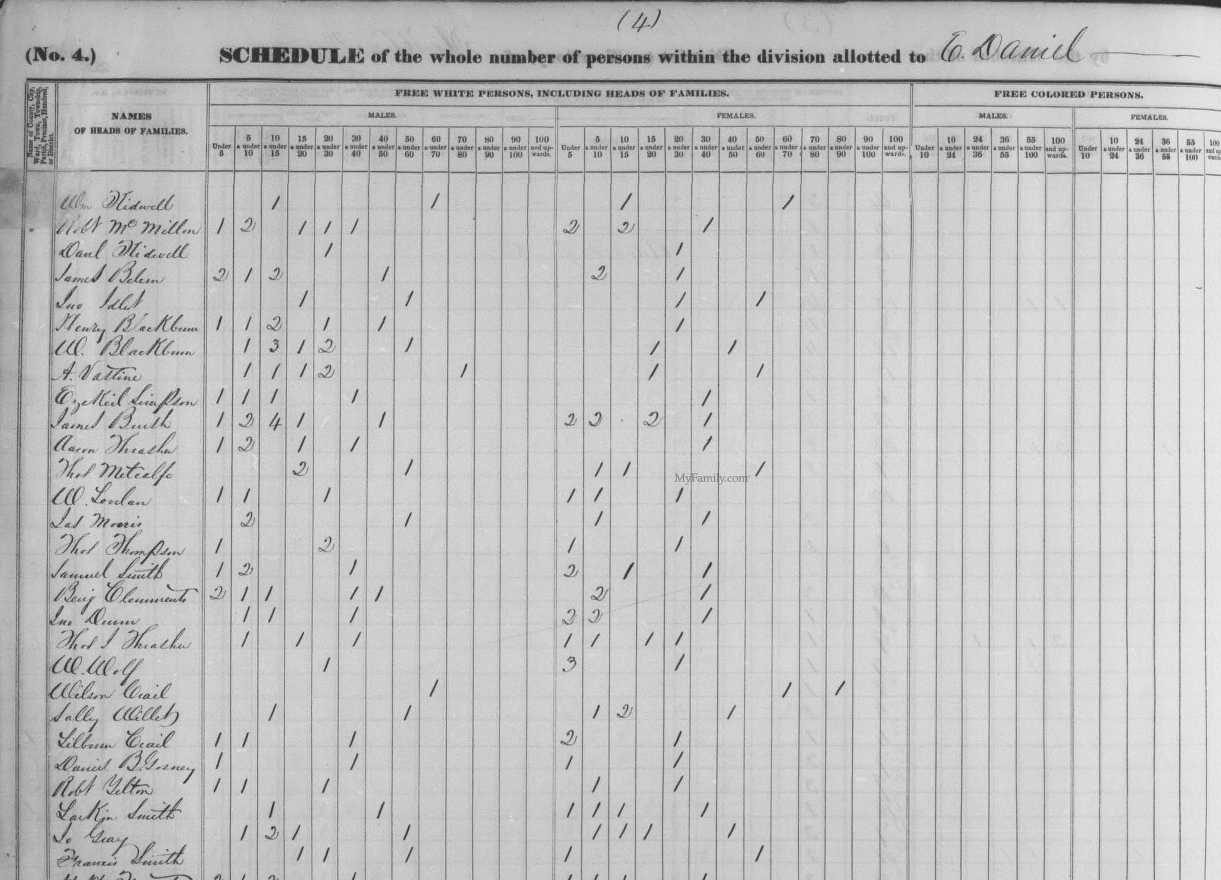 (4)
(No. 4.) SCHEDULE of the whole number of persons within the division allotted to E. Daniel
Name of County, City, Ward, Town, Township, Parish, Precinct, Hundred, or District.
NAMES OF HEADS OF FAMILIES.
FREE WHITE PERSONS, INCLUDING HEADS OF FAMILIES.
FREE COLORED PERSONS.
MALES. FEMALES. MALES. FEMALES.
Under 5 5 & under 10 10 & under 15 15 & under 20 20 & under 30 30 & under 40 40 & under 50 50 & under 60 60 & under 70 70 & under 80 80 & under 90 90 & under 100 100 and upwards.
Under 5 5 & under 10 10 & under 15 15 & under 20 20 & under 30 30 & under 40 40 & under 50 50 & under 60 60 & under 70 70 & under 80 80 & under 90 90 & under 100 100 and upwards.
Under 10 10 & under 24 24 & under 36 36 & under 55 55 & under 100 100 and upwards.
Under 10 10 & under 24 24 & under 36 36 & under 55 55 & under 100 100
Wm Kidwell 1 1 1 1
Robt McMillon 1 2 1 1 1 2 2 1
Danl Kidwell 1 1
James 2 1 2 1 2 1
Jno 1 1 1 1
Henry Blackburn 1 1 2 1 1 1
W. Blackburn 1 3 1 2 1 1 1
A. Vastine 1 1 1 2 1 1 1
Ezekiel Simpson 1 1 1 1 1
James 1 2 4 1 1 2 2 2 1
Aaron Thrasher 1 2 1 1 1
Thos Metcalfe 2 1 1 1 1
MyFamily.com
W. 1 1 1 1 1 1
Jas Morris 2 1 1 1
Thos Thompson 1 2 1 1
Samuel Smith 1 2 1 2 1 1
Benj Clements 2 1 1 1 1 2 1
Jno 1 1 1 2 2 1
Thos J Thrasher 1 1 1 1 1 1 1
W. Wolf 1 3 1
Wilson Crail 1 1 1
Sally Willet 1 1 1 2 1
Lilburn Crail 1 1 1 2 1
Daniel B. Gosney 1 1 1 1
Robt 1 1 1 1 1
Larkin Smith 1 1 1 1 1 1
Jo Gray 1 2 1 1 1 1 1 1
Francis Smith 1 1 1 1 1